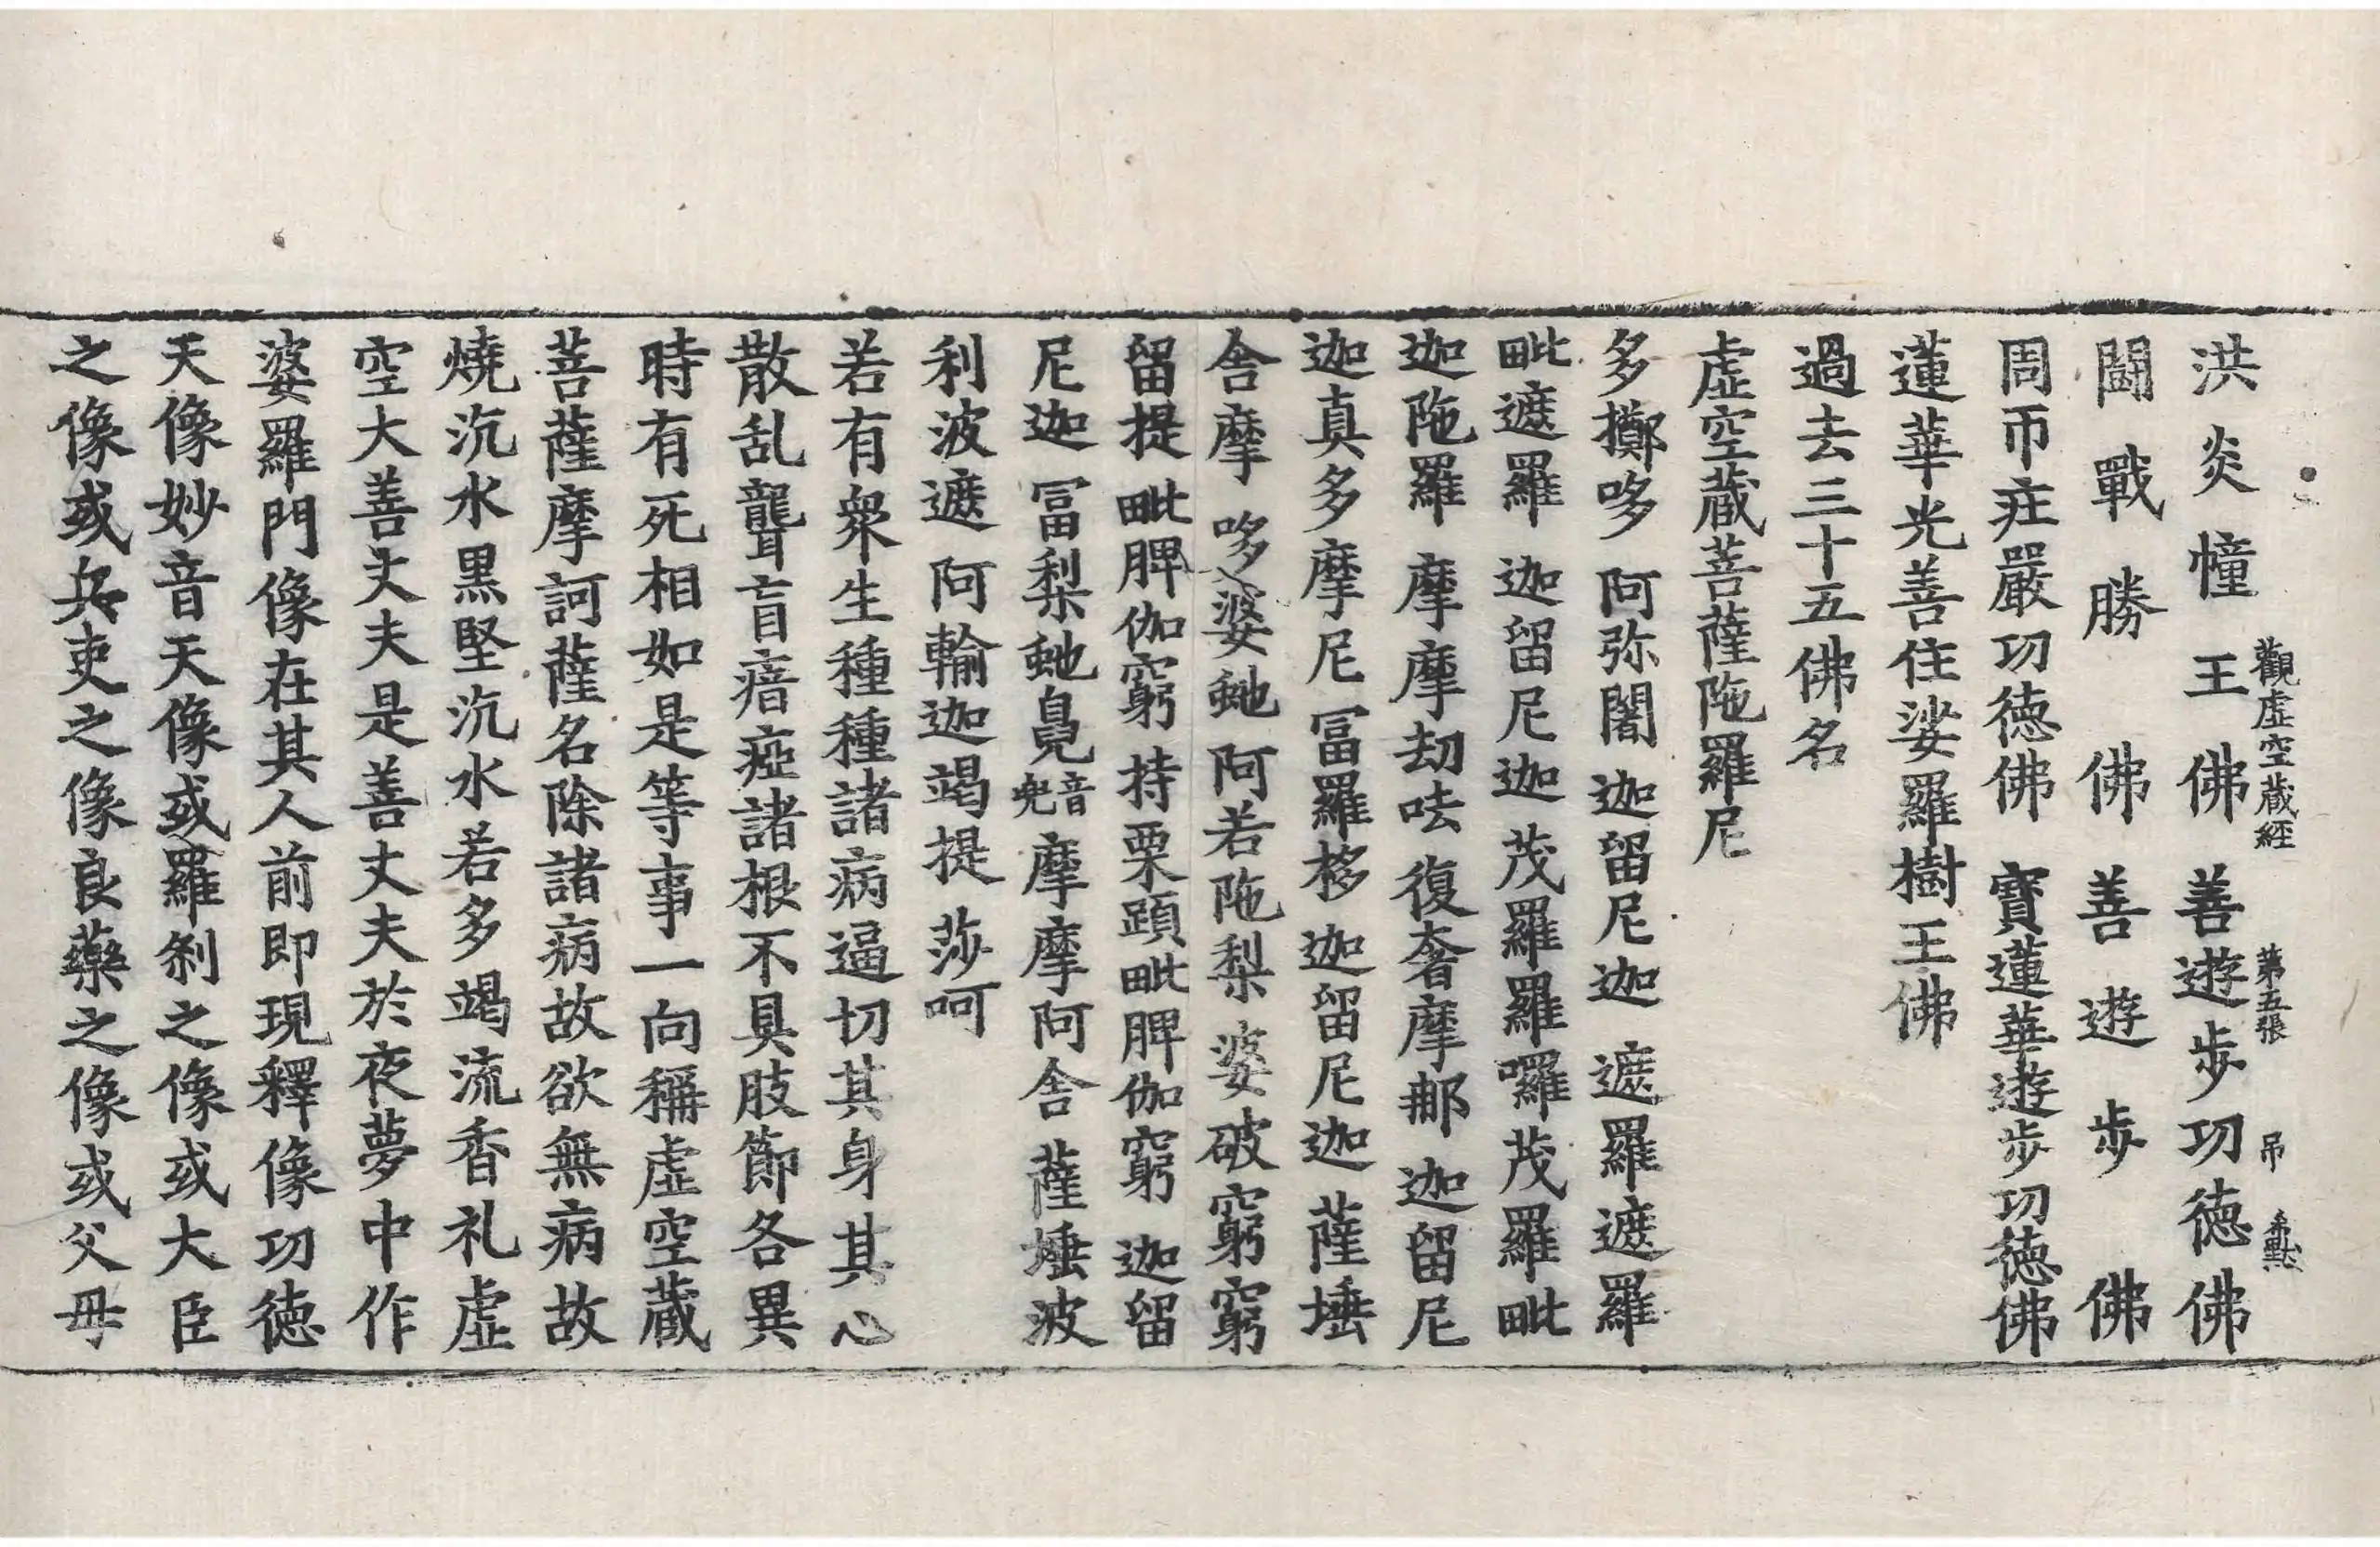 觀虛空藏經 第五張 帛
洪炎幢王佛 善遊步功德佛
鬪戰勝佛 善遊步佛
周帀庄嚴功德佛 寶蓮華遊步功德佛
蓮華光善住娑羅樹王佛
過去三十五佛名
虛空藏菩薩陁羅尼
多擲哆 阿弥闍 迦留尼迦 遮羅遮羅
毗遮羅 迦留尼迦 茂羅羅囉茂羅毗
迦陁羅 摩摩刧呿 復奢摩那 迦留尼
迦真多摩尼冨羅移 迦留尼迦 薩埵
舍摩 哆婆虵 阿若陁梨 婆破窮窮
留提毗脾伽窮 持栗蹞毗脾伽窮 迦留
尼迦 冨梨虵 音兜 摩摩阿舍 薩埵波
利波遮 阿輸迦竭提 莎呵
若有衆生種種諸病逼切其身其心
散乱聾盲瘖瘂諸根不具肢節各異
時有死相如是等事一向稱虛空藏
菩薩摩訶薩名除諸病故欲無病故
燒沉水黑堅沉水若多竭流香礼虛
空大善丈夫是善丈夫於夜夢中作
婆羅門像在其人前即現釋像功德
天像妙音天像或羅刹之像或大臣
之像或兵吏之像良藥之像或父母